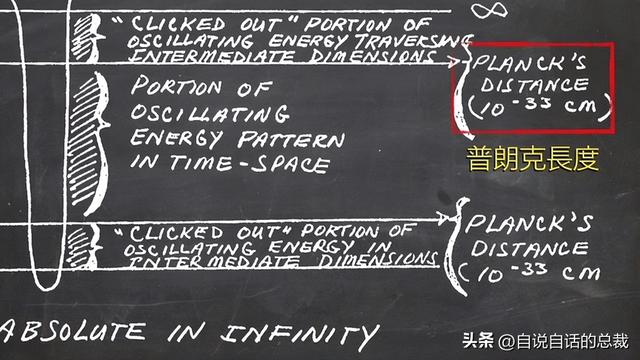 ∞
"CLICKED OUT" PORTION OF
OSCILLATING ENERGY TRAVERSING
INTERMEDIATE DIMENSIONS
PLANCK'S
DISTANCE
(10⁻³³ CM)
普朗克長度
PORTION OF
OSCILLATING
ENERGY PATTERN
IN TIME-SPACE
"CLICKED OUT" PORTION OF
OSCILLATING ENERGY IN
INTERMEDIATE DIMENSIONS
PLANCK'S
DISTANCE
(10⁻³³ CM
ABSOLUTE IN INFINITY
头条 @自说自话的总裁